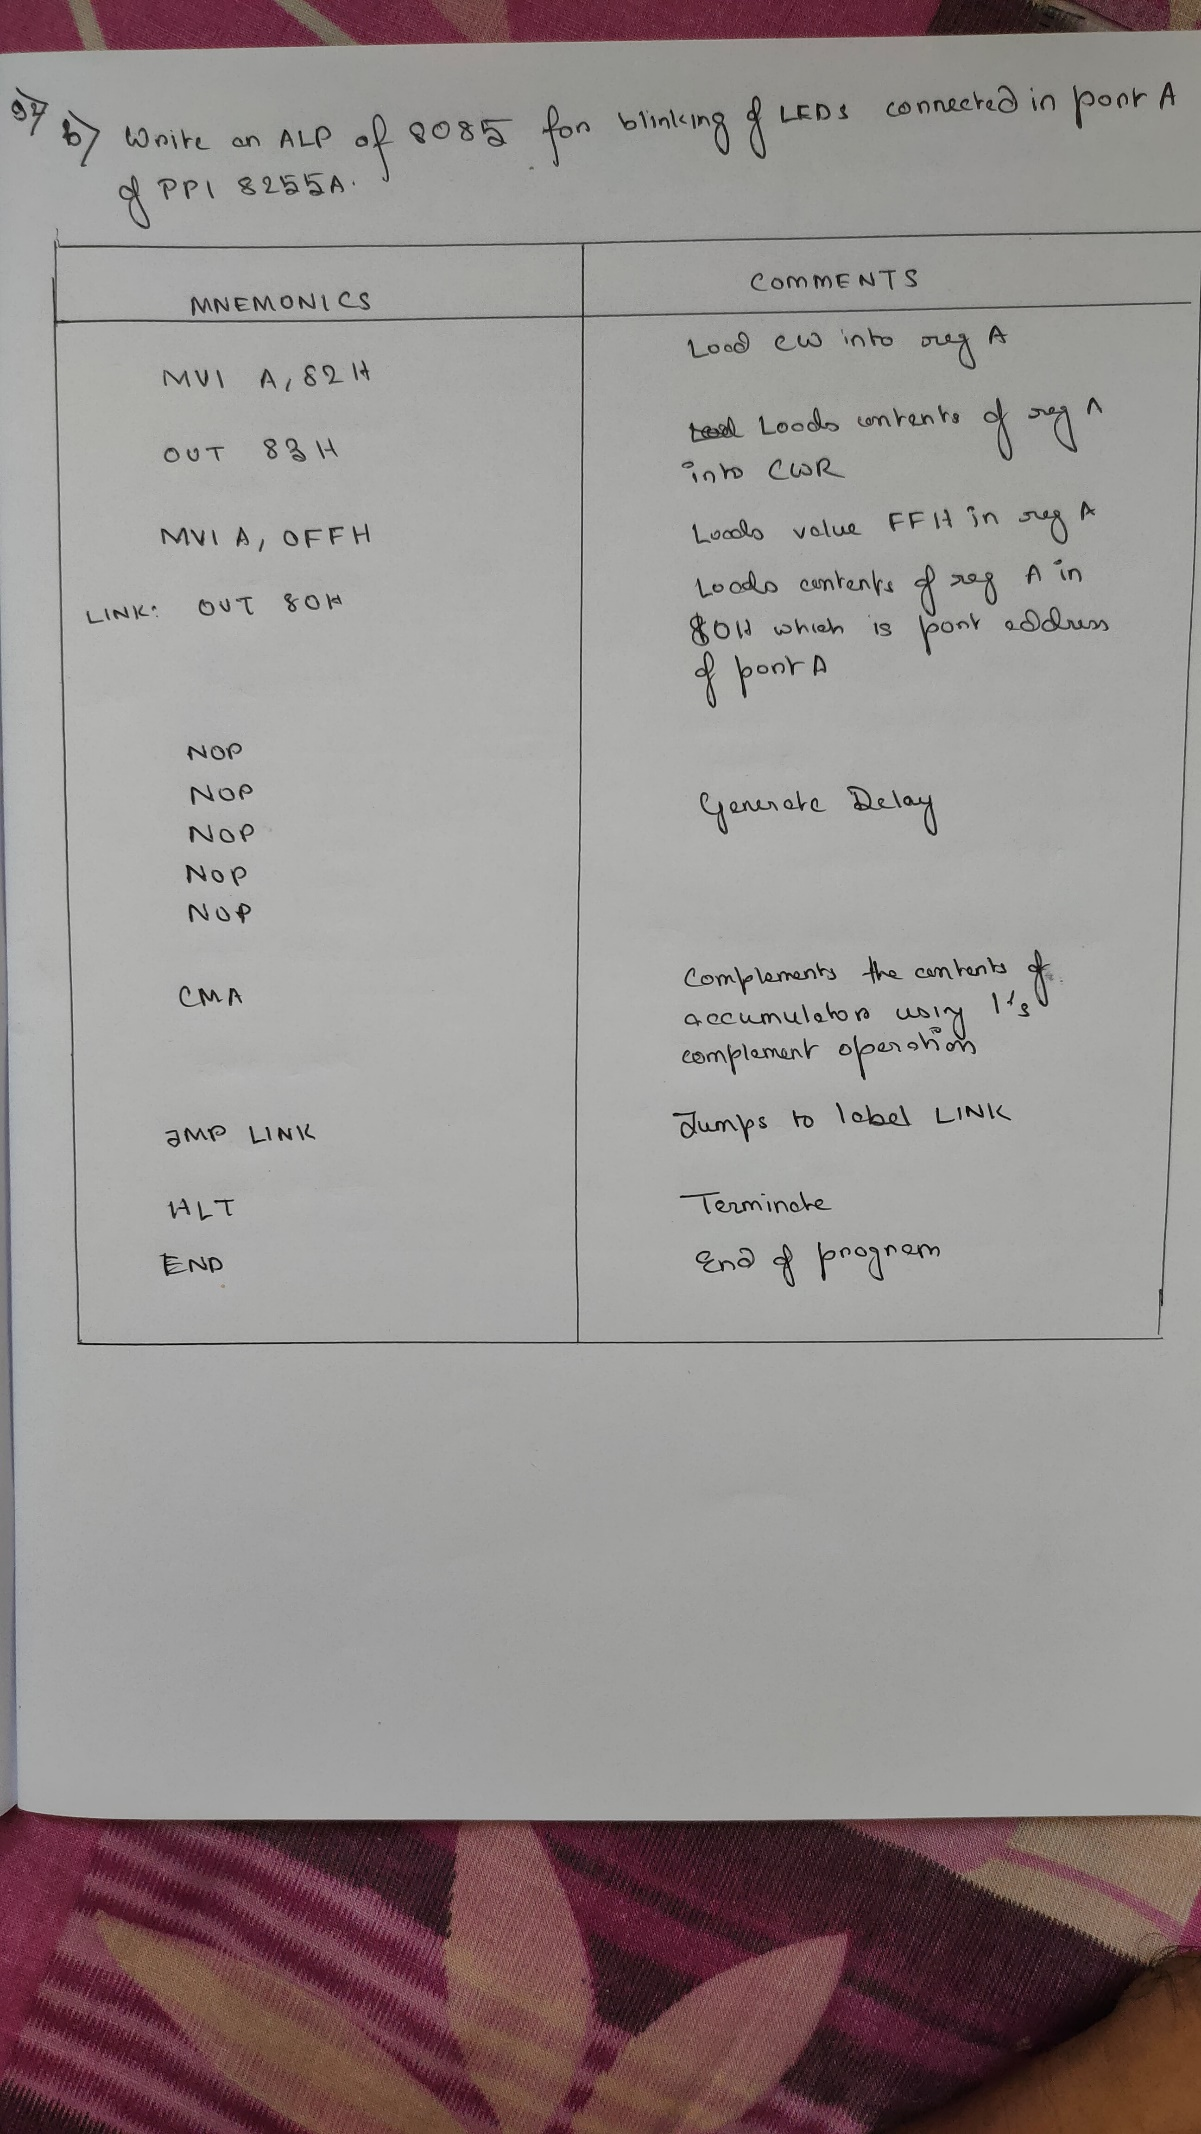 b) Write an ALP of 8085 for blinking of LEDs connected in port A
of PPI 8255A.
MNEMONICS COMMENTS
MVI A, 82H Load CW into reg A
OUT 83H Loads contents of reg A
into CWR
MVI A, 0FFH Loads value FFH in reg A
LINK: OUT 80H Loads contents of reg A in
80H which is port address
of port A
NOP
NOP Generate Delay
NOP
NOP
NOP
CMA Complements the contents of
accumulator using 1's
complement operation
JMP LINK Jumps to label LINK
HLT Terminate
END End of program